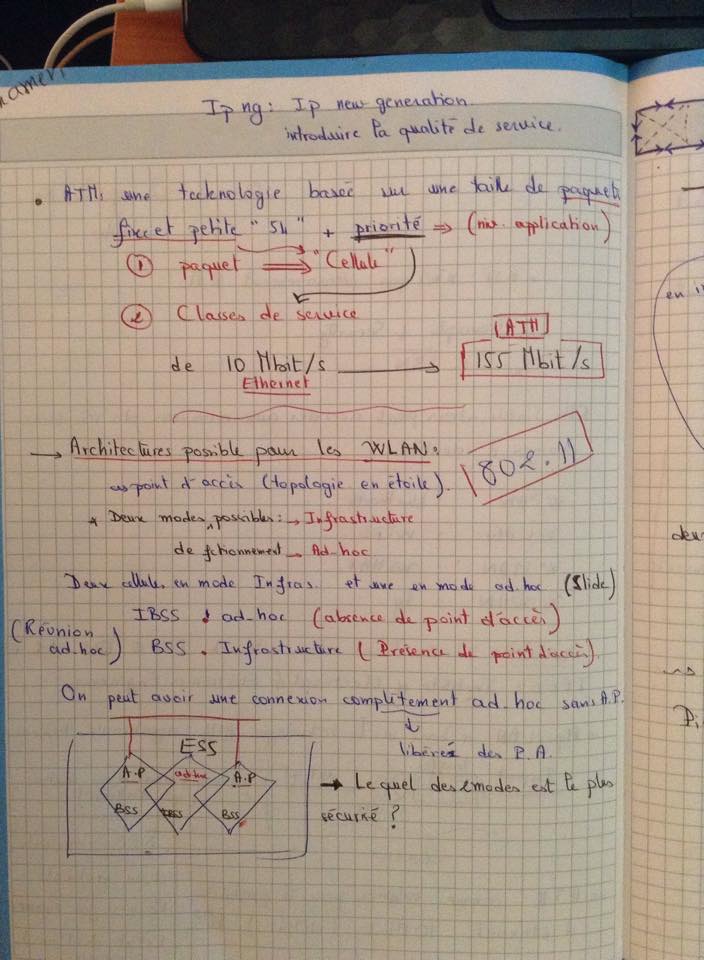 Ip ng: Ip new generation
introduire la qualité de service.
• ATM: une technologie basée sur une taille de paquets
fixe et petite "54" + priorité ⇒ (niv. application)
① paquet ⇒ "Cellule"
② Classes de service
ATM
de 10 Mbit/s → 155 Mbit/s
Ethernet
→ Architectures possible pour les WLAN:
802.11
point d'accès (topologie en étoile).
* Deux modes possibles: → Infrastructure
de fctionnement → Ad-hoc
Deux cellule en mode Infras. et une en mode ad_hoc (Slide)
IBSS : ad-hoc (absence de point d'accès)
(Réunion ad_hoc) BSS . Infrastructure (Présence de point d'accès).
On peut avoir une connexion complitement ad_hoc sans A.P.
libérés des P.A.
ESS
A.P ad-hoc A.P
BSS IBSS BSS
→ Le quel des 2 modes est le plus
sécurisé ?
en
deu